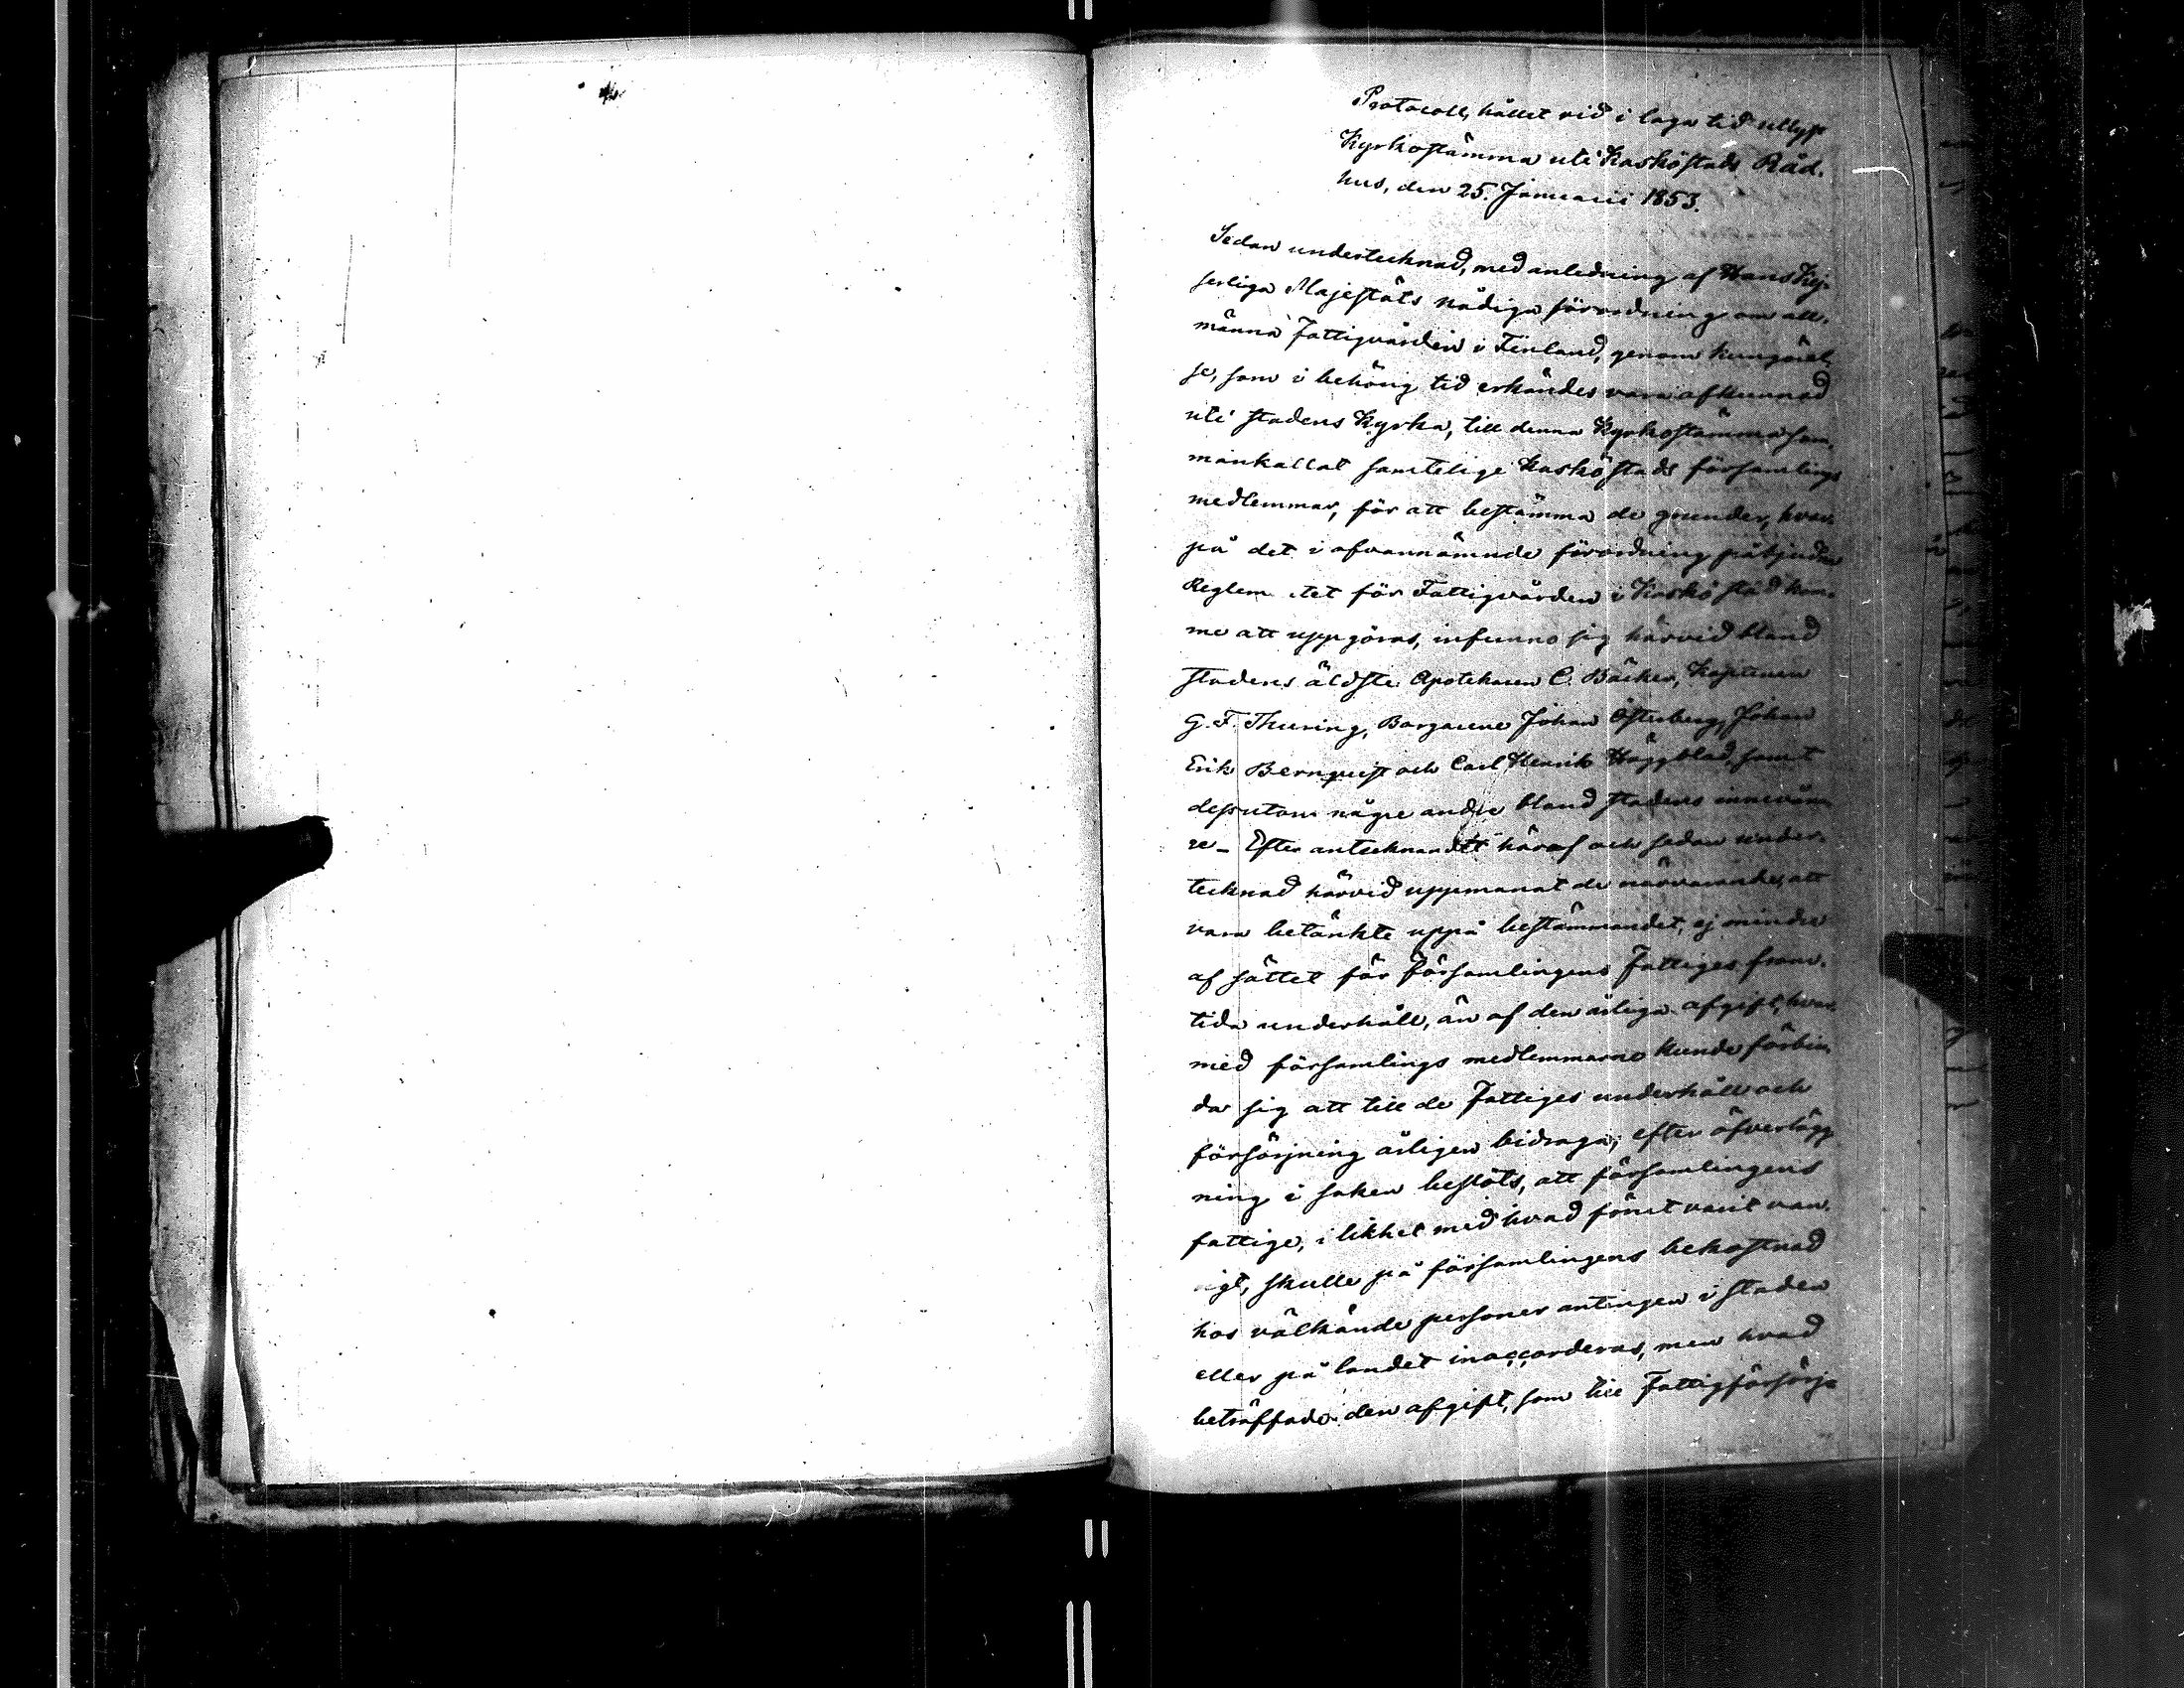 Protocoll, hållet vid i laga tid utlyst
Kyrkostämma uti Kaskö stads Råd-
hus, den 25. Januarii 1853.
Sedan undertecknad, med anledning af Hans Kej-
serliga Majestäts nådiga förordning om all-
männa Fattigvården i Finland, genom kungörel-
se, som i behörig tid erkändes vara afkunnad
uti stadens Kyrka, till denna Kyrkostämma sam-
mankallat samtelige Kaskö stads församlings
medlemmar, för att bestämma de grunder, hvar-
på det i ofvannämnde förordning påbjudna
Reglem tet för Fattigvården i Kaskö stad kom-
me att uppgöras, infunno sig härvid bland
stadens äldste Apothekaren C. Bäcker, Kaptenen
G. F. Thuring, Borgarene Johan Österberg, Johan
Erik Bernquist och Carl Henrik Häggblad, samt
dessutom några andre bland stadens innevåna-
re – Efter antecknandet häraf och sedan under-
tecknad härvid uppmanat de närvarande, att
vara betänkte uppå bestämmandet, ej mindre
af sättet för församlingens Fattiges fram-
tida underhåll, än af den årliga afgift, hvar-
med församlings medlemmarne kunde förbin-
da sig att till de Fattiges underhåll och
försörjning årligen bidraga; efter öfverlägg-
ning i saken beslöts, att församlingens
fattige, i likhet med hvad förut varit van-
ligt, skulle på församlingens bekostnad
hos välkände personer antingen i staden
eller på landet inaccorderas, men hvad
beträffade den afgift, som till Fattigförsörj-